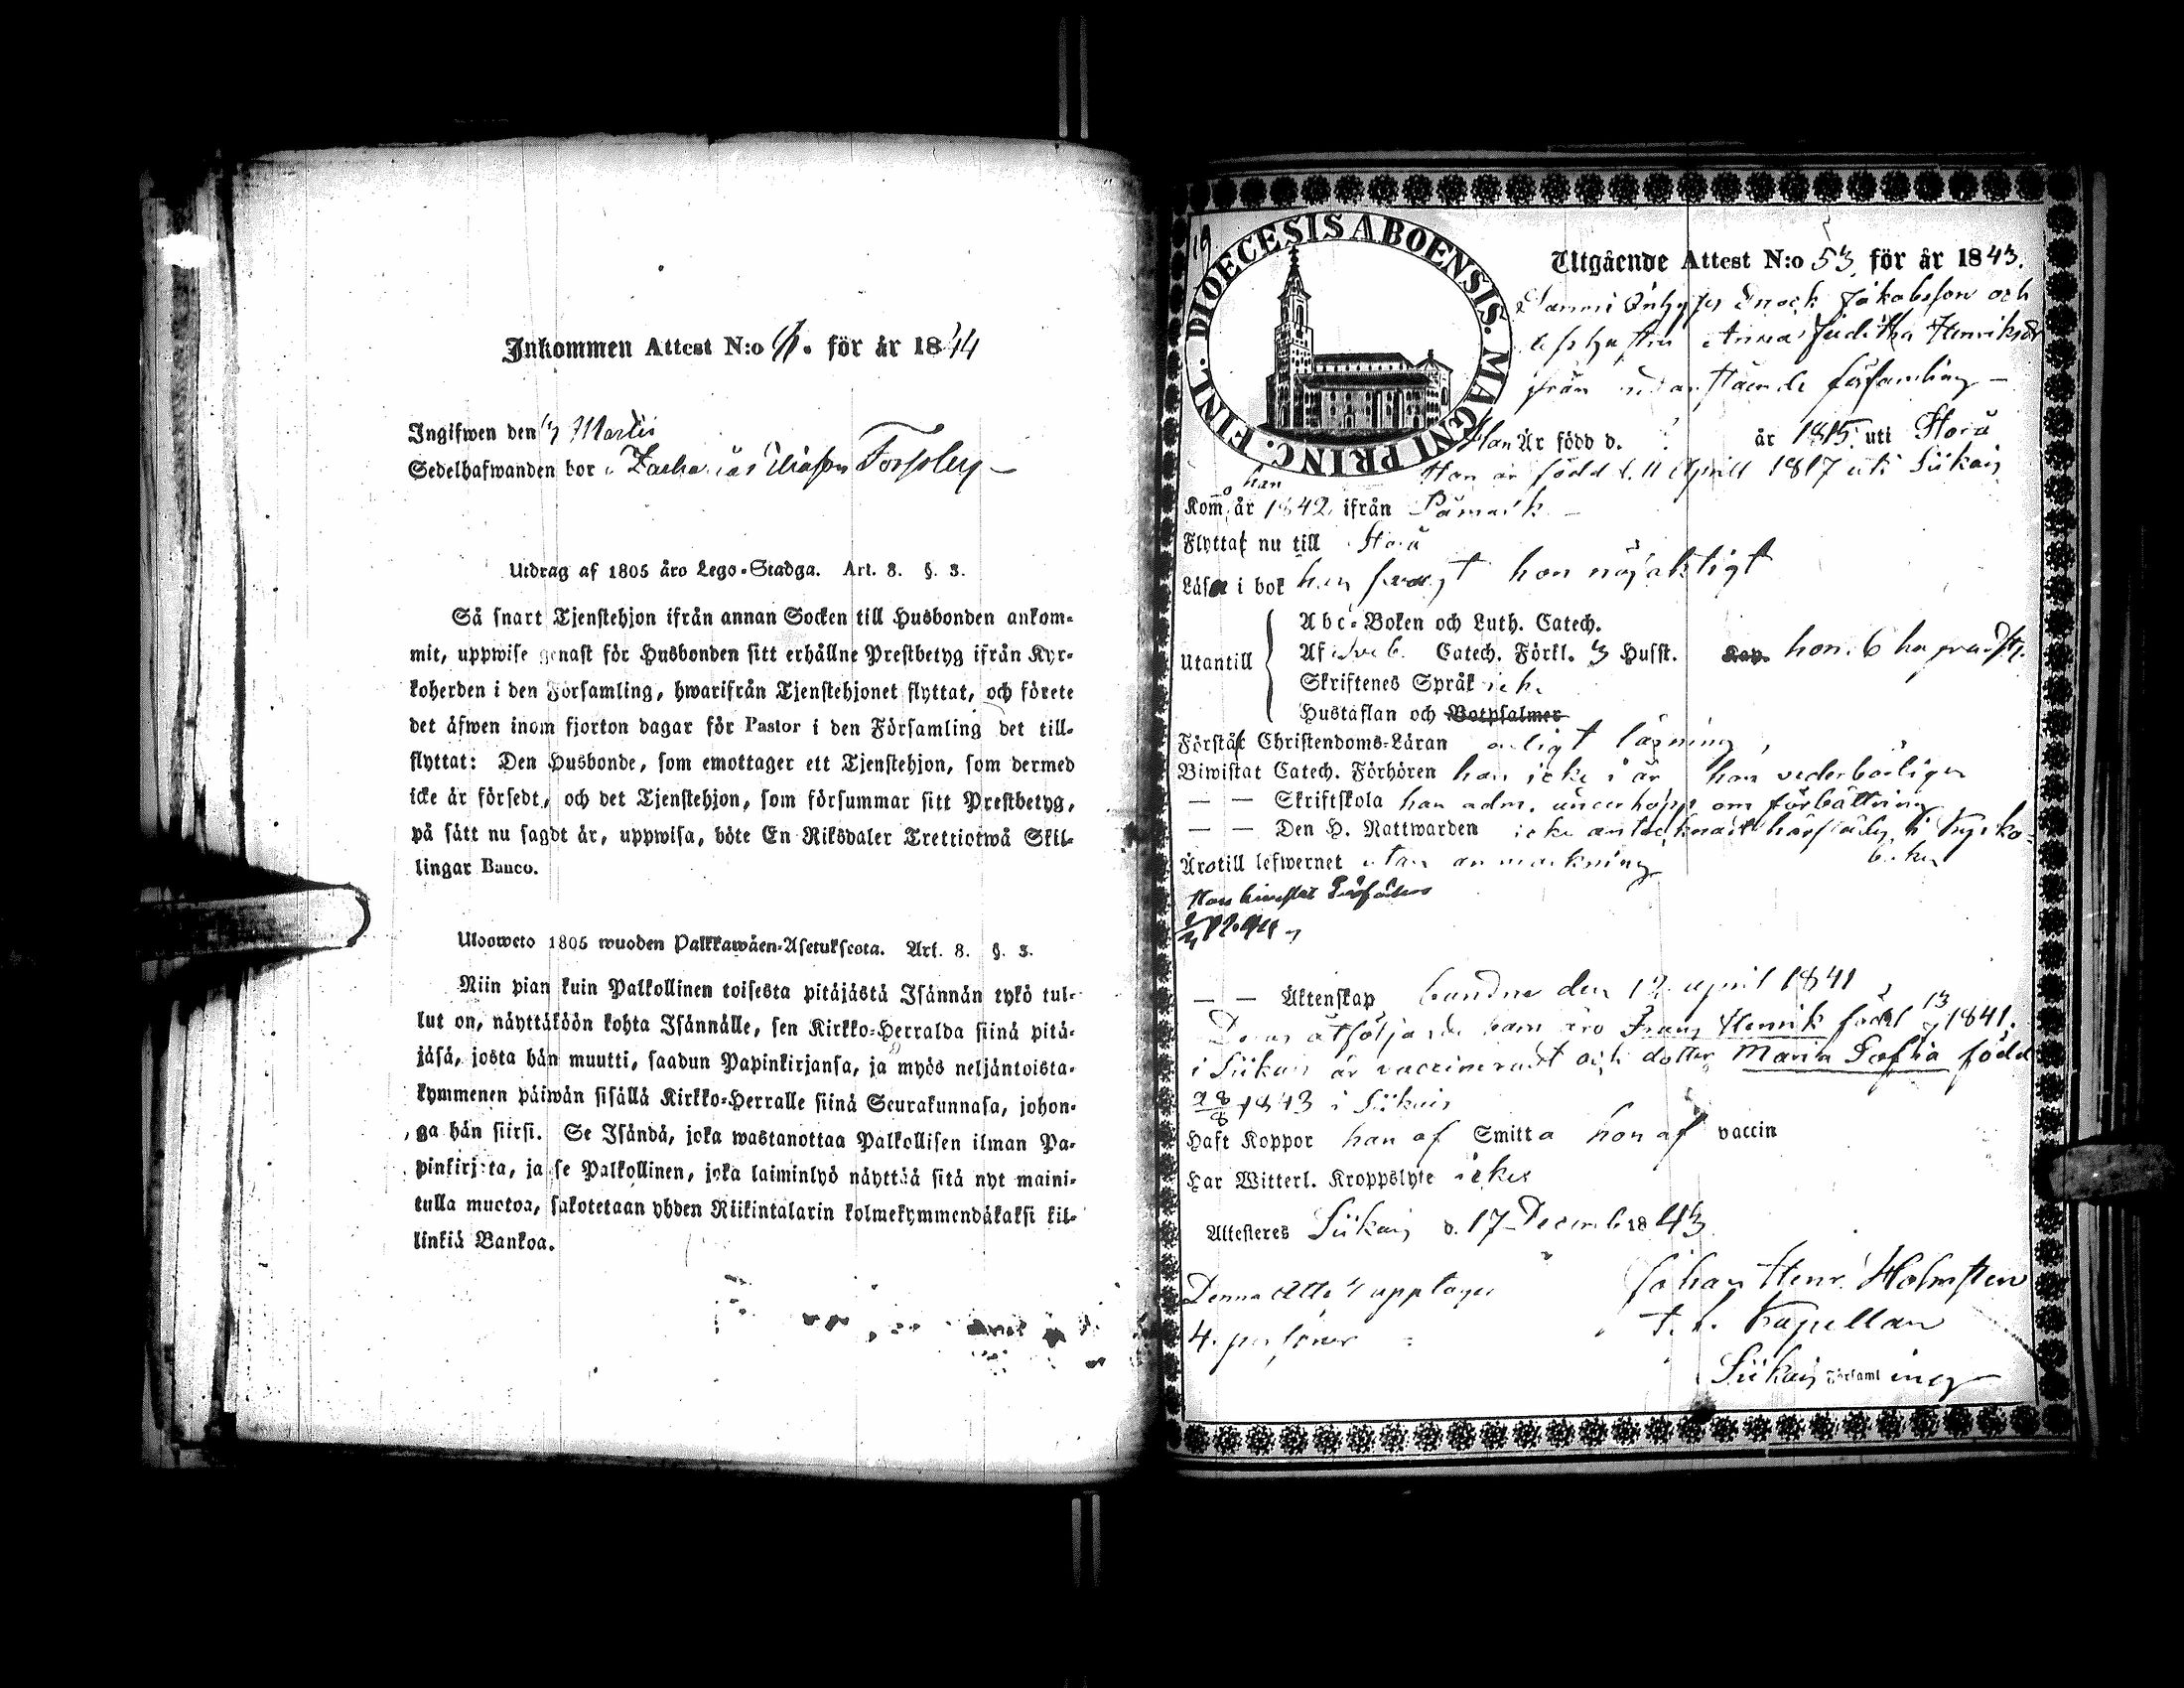 Inkommen Attest N:o för år 1844
Ingifwen den 3 Martii
Sedelhafwanden bor Forssberg
Utdrag af 1805 åro Lego-Stadga. Art. 8. §. 3.
Så snart Tjenstehjon ifrån annan Socken till Husbonden ankom-
mit, uppwise genast för Husbonden sitt erhållne Prestbetyg ifrån Kyr-
koherden i den Församling, hwarifrån Tjenstehjonet flyttat, och förete
det äfwen inom fjorton dagar för Pastor i den Församling det till-
flyttat: Den Husbonde, som emottager ett Tjenstehjon, som dermed
icke är försedt, och det Tjenstehjon, som försummar sitt Prestbetyg,
på sätt nu sagdt är, uppwisa, böte En Riksdaler Trettiotwå Skil-
lingar Banco.
Uloswеto 1805 wuoden Palkkawäen-Asetuksesta. Art. 8. §. 3.
Niin pian kuin Palkollinen toisesta pitäjästä Isännän tykö tul-
lut on, näyttäköön kohta Isännälle, sen Kirkko-Herralda siinä pitä-
jäsä, josta hän muutti, saadun Papinkirjansa, ja myös neljäntoista-
kymmenen päiwän sisällä Kirkko-Herralle siinä Seurakunnasa, johon-
ga hän siirsi. Se Isändä, joka wastanottaa Palkollisen ilman Pa-
pinkirjata, ja se Palkollinen, joka laiminlyö näyttää sitä nyt maini-
tulla muotoa, sakotetaan yhden Riikintalarin kolmekymmendäkaksi kil-
linkiä Bankoa.
DIOECESIS ABOENSIS. MAGNI PRINC. FINL.
Utgående Attest N:o 53 för år 1843.
Enock Jakobsson och
Anna Juditha Henriksdr
från församling
Han Är född d. ? år 1815 uti Storå
Hon är född d. 11 Aprill 1817 uti Siikais
han
Kom år 1842 ifrån Påmark
Flyttat nu till Storå
Läsa i bok han svagt hon nöjaktigt
Utantill
Abc-Boken och Luth. Catech.
Af Catech. Förkl. 3 Husst. Kap. hon 6
Skriftenes Språk icke
Hustaflan och Botpsalmer
Förstår Christendoms-Läran enligt läsning
Biwistat Catech. Förhören han icke i år hon vederbörligen
— — Skriftskola han adm. under hopp om förbättring
— — Den H. Nattwarden icke antecknadt härstädes i Kyrko-
boken
Äro till lefwernet utan anmärkning
— — Äktenskap bundne den 12 april 1841
Deras åtföljande barn äro Frans Henrik född 13 1841
i Siikais är vaccineradt och dotter Maria Sofia född
28/8 1843 i Siikais
Haft Koppor han af Smitta hon af vaccin
Har Witterl. Kroppslyte icke
Attesteres Siikais d. 17 Decemb 1843
Denna Attest upptager
4. personer
Johan Henr. Holmsten
t. f. Kapellan
Siikais Församl ing